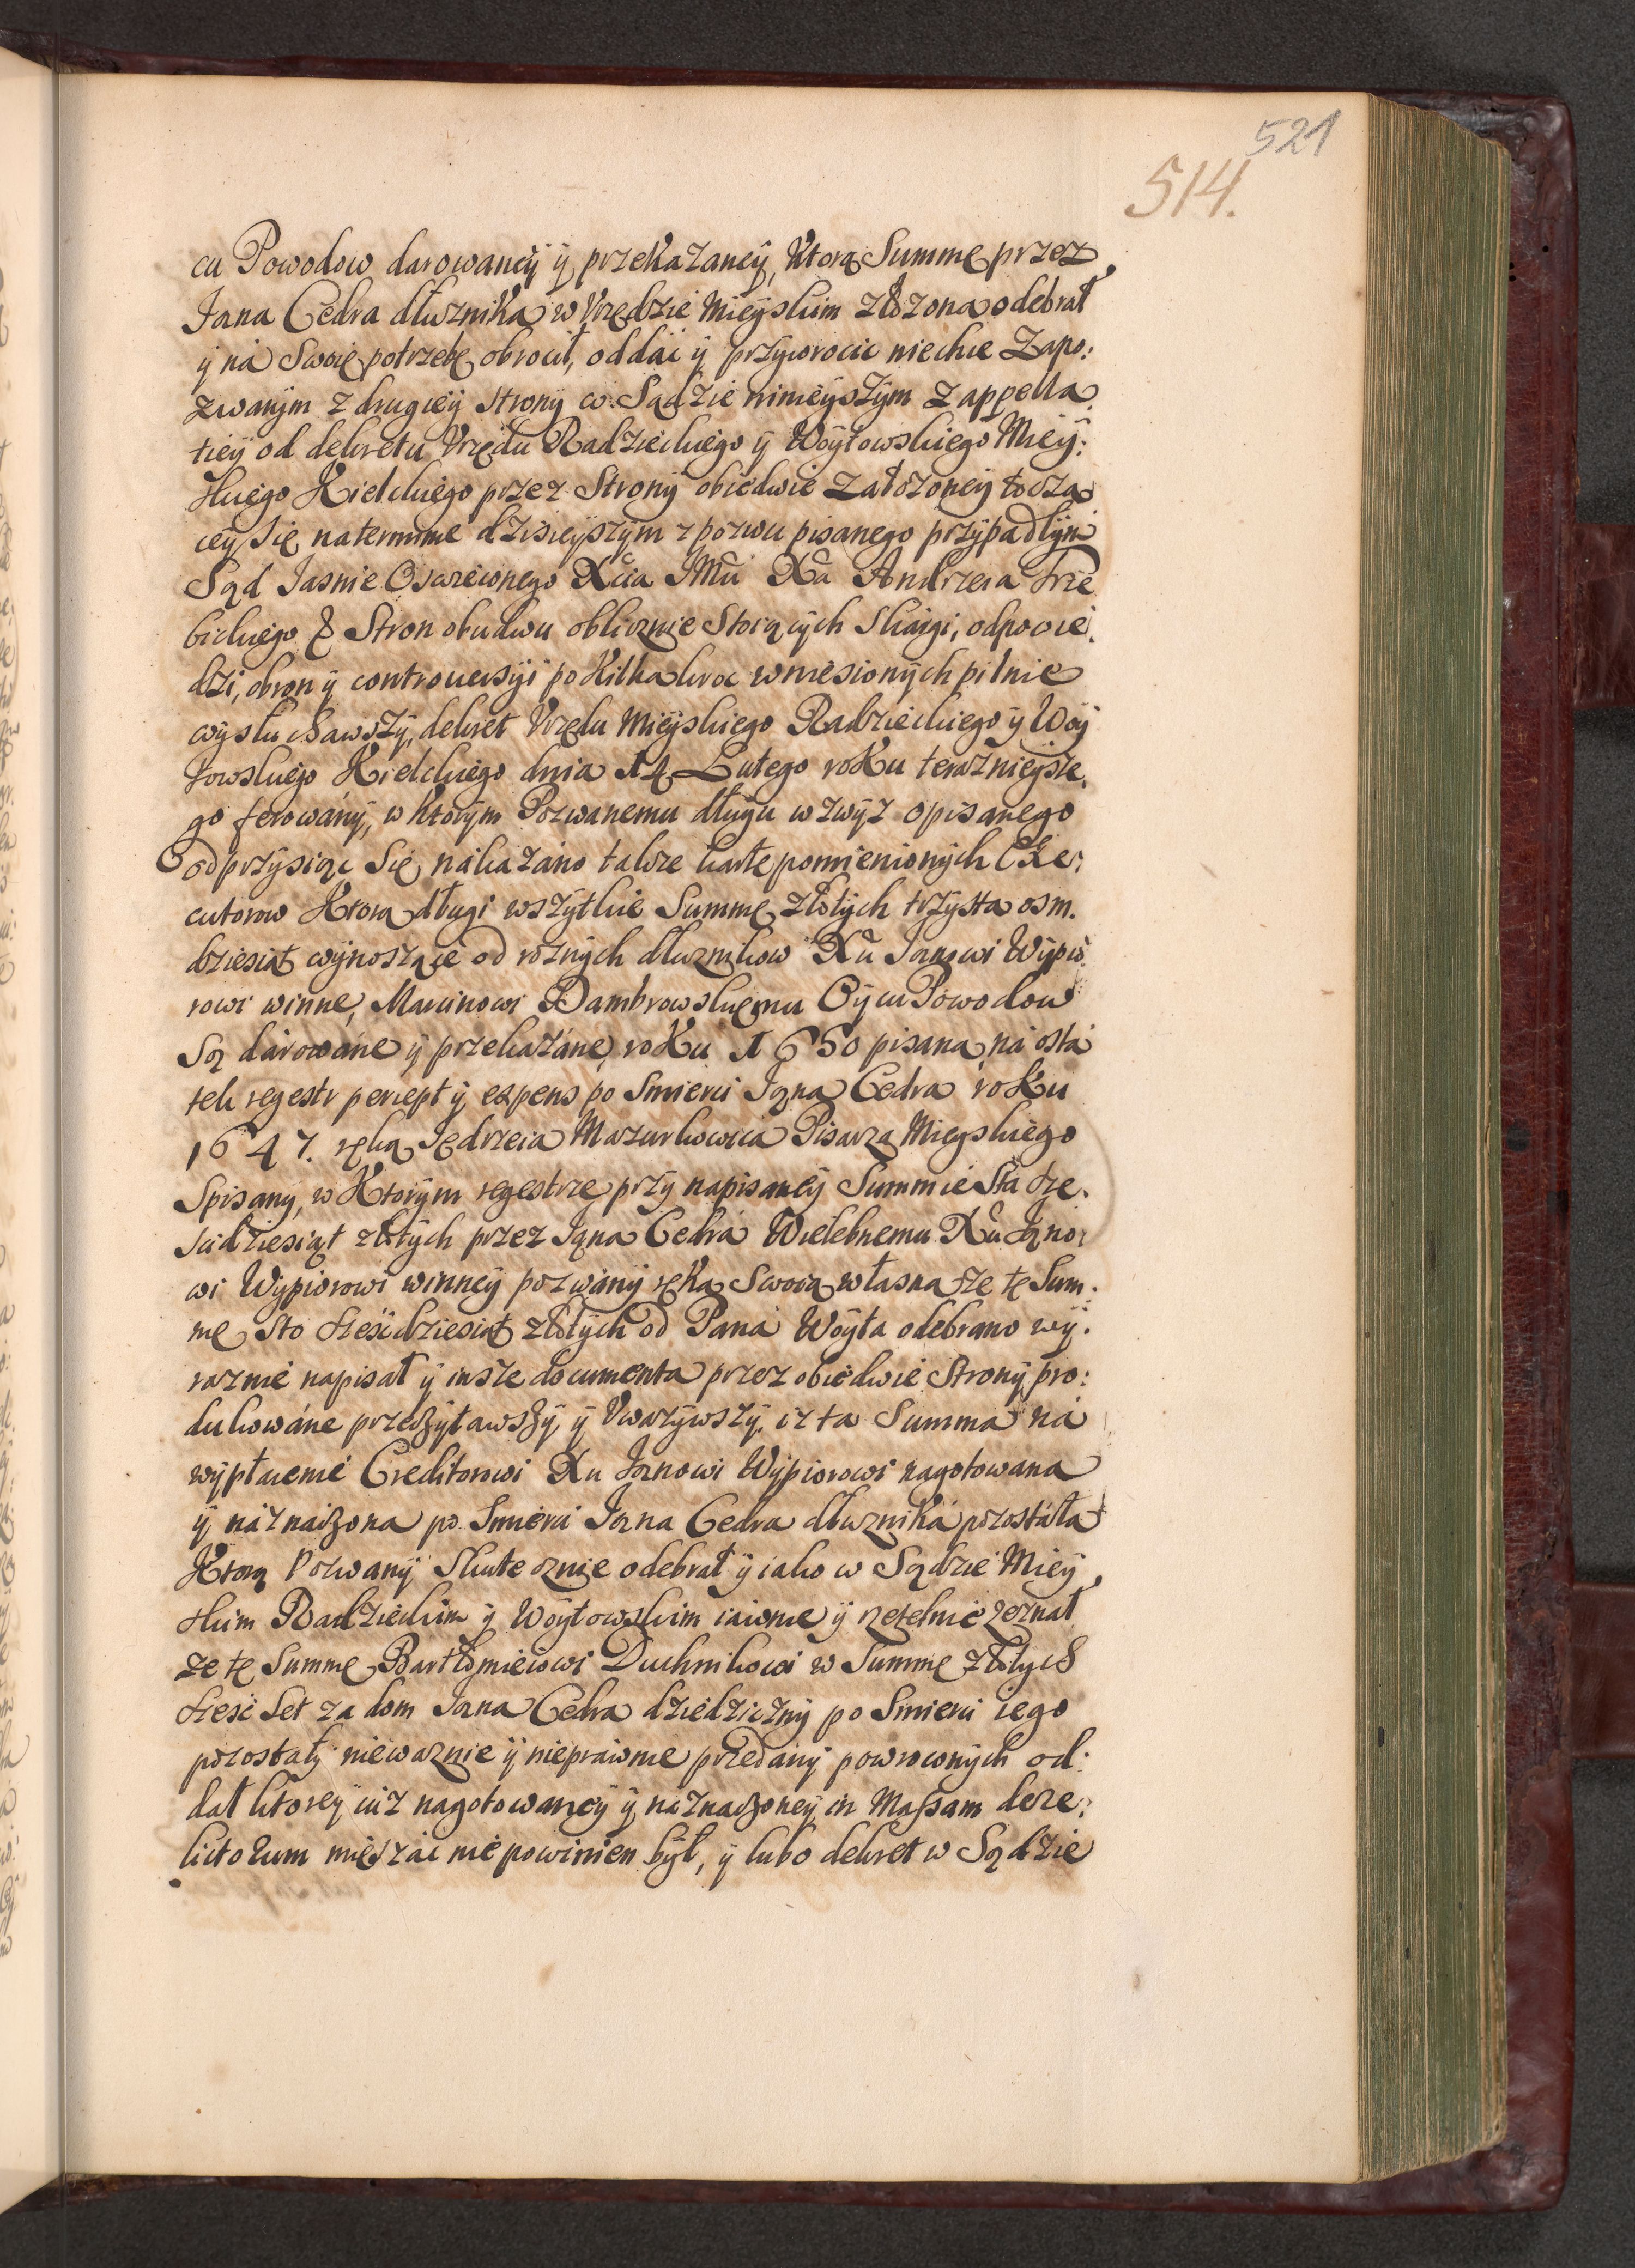 521
514.
cu Powodow darowanеy ÿ przekazaneÿ, ktorą Summę przez
Jana Cedra dłuznika w Vrzędzie Mieyskim złozona odebrał
ÿ ná Swoię potrzebę obrocił, oddać ÿ przywrocic niechce Zapo:
zwanÿm z drugieÿ Stronÿ w Sądzie ninieÿszÿm z appella
tieÿ od dekretu Vrzędu Radzieckiego ÿ Woÿtowskiego Mieÿ:
skiego Kieleckiego przez Stronÿ obiedwie załozoneÿ tocza
ceÿ Się na terminie dzisieÿszÿm z pozwu pisanego przÿpadłÿm
Sąd Jasnie Oswieconego Xcia JMci Xa Andrzeia Trze
bickiego z Stron obudwu oblicznie Stoiącÿch Skargi, odpowie:
dzi, obron ÿ controuersÿi po kilkakroc wniesionÿch pilnie
wÿsłuchawszÿ, dekret Vrzędu Mieÿskiego Radzieckiego ÿ Woÿ
towskiego Kieleckiego dnia 14 Lutego roku teraznieÿsze,
go ferowánÿ, w ktorÿm Pozwanemu długu wzwÿz opisanego
odprzÿsiąc Się nákazáno takze kartę pomienionÿch Exe:
cutorow Ktorą długi wszÿtkie Summę złotÿch trzÿsta osm.
dziesiąt wÿnoszące od roznÿch dłuznikow Xu Janowi Wÿpio
rowi winne, Marcinowi Dambrowskiemu Oÿcu Powodow
Są dárowáne ÿ przekazáne, roku 1650 pisana, ná osta
tek regestr percept ÿ expens po Smierci Jana Cedra roku
1647. ręką Jędrzeia Mazurkowica Pisarza Mieyskiego
Spisany, w Ktorÿm regestrze przÿ napisaneÿ Summie Sta sze.
scidziesiąt złotÿch przez Jana Cedra Wielebnemu Xu Jano,
wi Wypiorowi winneÿ pozwánÿ ręką Swoią własna ze tę Sum:
mę Sto szescdziesiąt złotÿch od Pana Woÿta odebrano wÿ:
raznie napisał ÿ insze documenta przez obiedwie Stronÿ pro:
dukowáne przeczÿtawszÿ, ÿ Vwazÿwszÿ, iz ta Summa ná
wÿpłacenie Creditorowi Xu Janowi Wÿpiorowi nagotowana
ÿ náznaczona po Smierci Jana Cedra dłuzniká pozostáła
Ktorą Pozwanÿ Skutecznie odebrał ÿ iako w Sądzie Mieÿ,
skim Radzieckim ÿ Woÿtowskim iawnie ÿ rzetelnie zeznał
ze tę Summę Bartłomieiowi Duchnikowi w Summę złotych
szesc Set za dom Jana Cedra dziedzicznÿ po Smierci iego
pozostałÿ niewaznie ÿ nieprawnie przedanÿ powroconÿch od:
dał ktoreÿ iuz nagotowaneÿ ÿ náznaczoneÿ in Massam dere,
lictorum mięszac nie powinien bÿł, ÿ lubo dekret w Sądzie